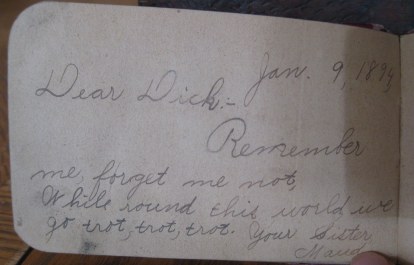 Jan. 9, 189
Dear Dick:-
Remember
me, forget me not,
While round this world we
go trot, trot, trot. Your Sister
Maud